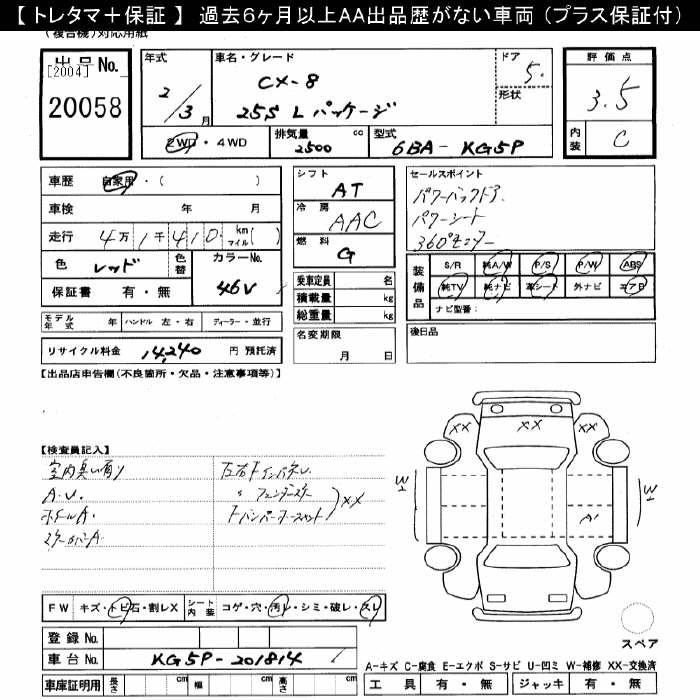 【 トレタマ＋保証 】 過去６ヶ月以上ＡＡ出品歴がない車両（プラス保証付）
(複合機)対応用紙
出品No. [2004] 20058
年式 2/3月
車名・グレード CX-8 25S Lパッケージ
ドア 5.
形状
評価点 3.5
内装 C
2WD・4WD
排気量 2500 cc
型式 6BA-KG5P
車歴 自家用・( )
車検 年 月
走行 4万1千410 km マイル( )
色 レッド 色替 カラーNo. 46V
保証書 有・無
モデル年式 年 ハンドル 左・右 ディーラー・並行
リサイクル料金 14,240 円 預託済
シフト AT
冷房 AAC
燃料 G
乗車定員 名
積載量 kg
総重量 kg
名変期限 月 日
セールスポイント
パワーバックドア.
パワーシート
360°モニター
装備品 S/R 純A/W P/S P/W ABS
純TV 純ナビ 革シート 外ナビ エアB
ナビ型番：
後日品
【出品店申告欄(不良箇所・欠品・注意事項等)】
【検査員記入】
室内臭い有り
A.U.
ホイールA.
左右ドインパネU.
〃 フェンダーステー
XX
XX XX XX
W W
A1
FW キズ・トビ石・割レX シート内装 コゲ・穴・汚レ・シミ・破レ・スレ
登録 No.
車台 No. KG5P-201814
車庫証明用 長さ cm 幅 cm 高さ cm
スペア
A-キズ C-腐食 E-エクボ S-サビ U-凹ミ W-補修 XX-交換済
工具 有・無 ジャッキ 有・無